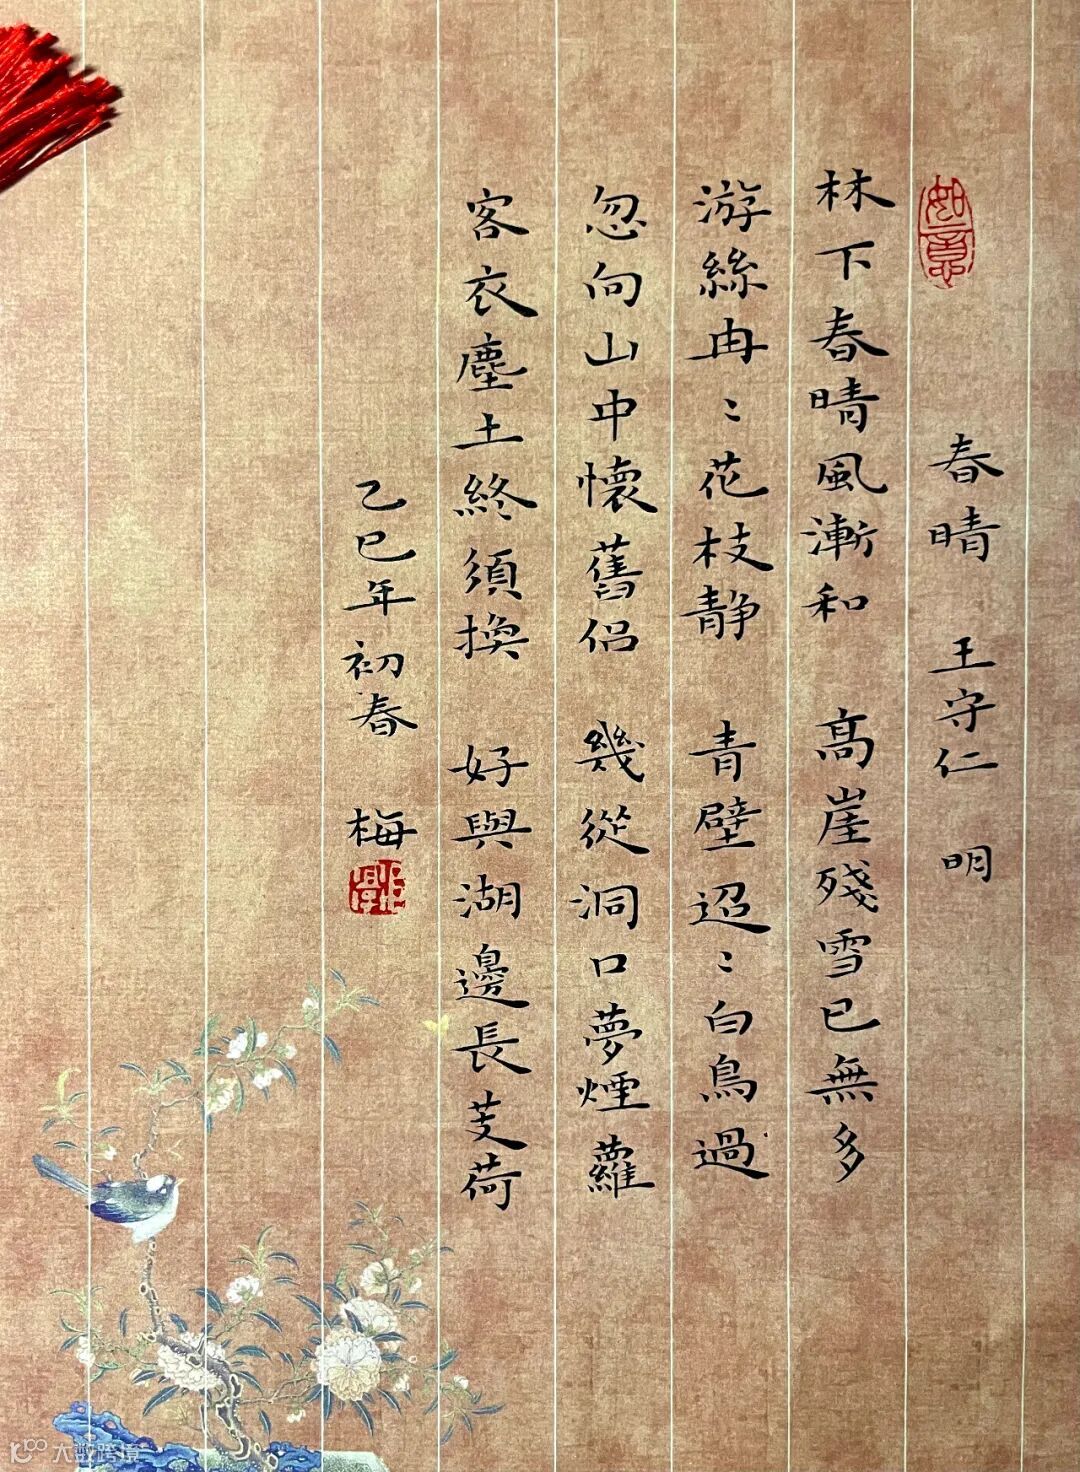 如意
春晴 王守仁 明
林下春晴風漸和 高崖殘雪已無多
游絲冉〻花枝静 青壁迢〻白鳥過
忽向山中懷舊侣 幾從洞口夢煙蘿
客衣塵土終須換 好與湖邊長芰荷
乙巳年初春 梅
大数跨境